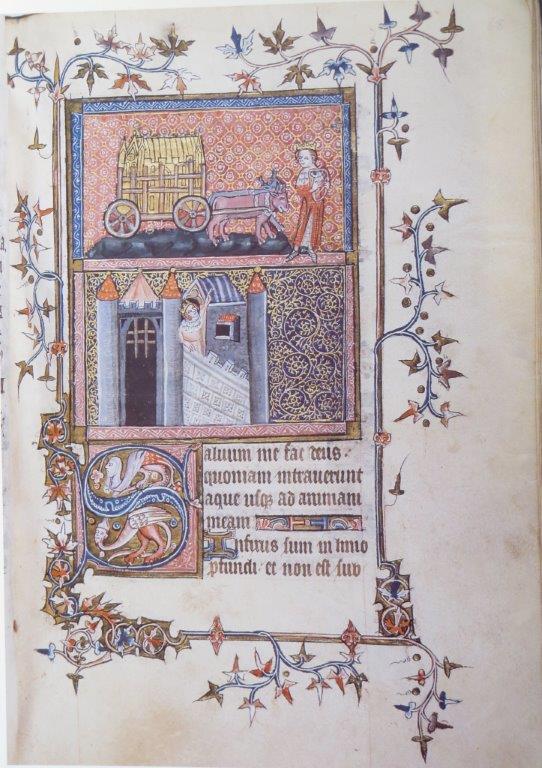 Saluum me fac deus
quoniam intrauerunt
aque usqz ad animam
meam
Infixus sum in limo
pfundi et non est sub